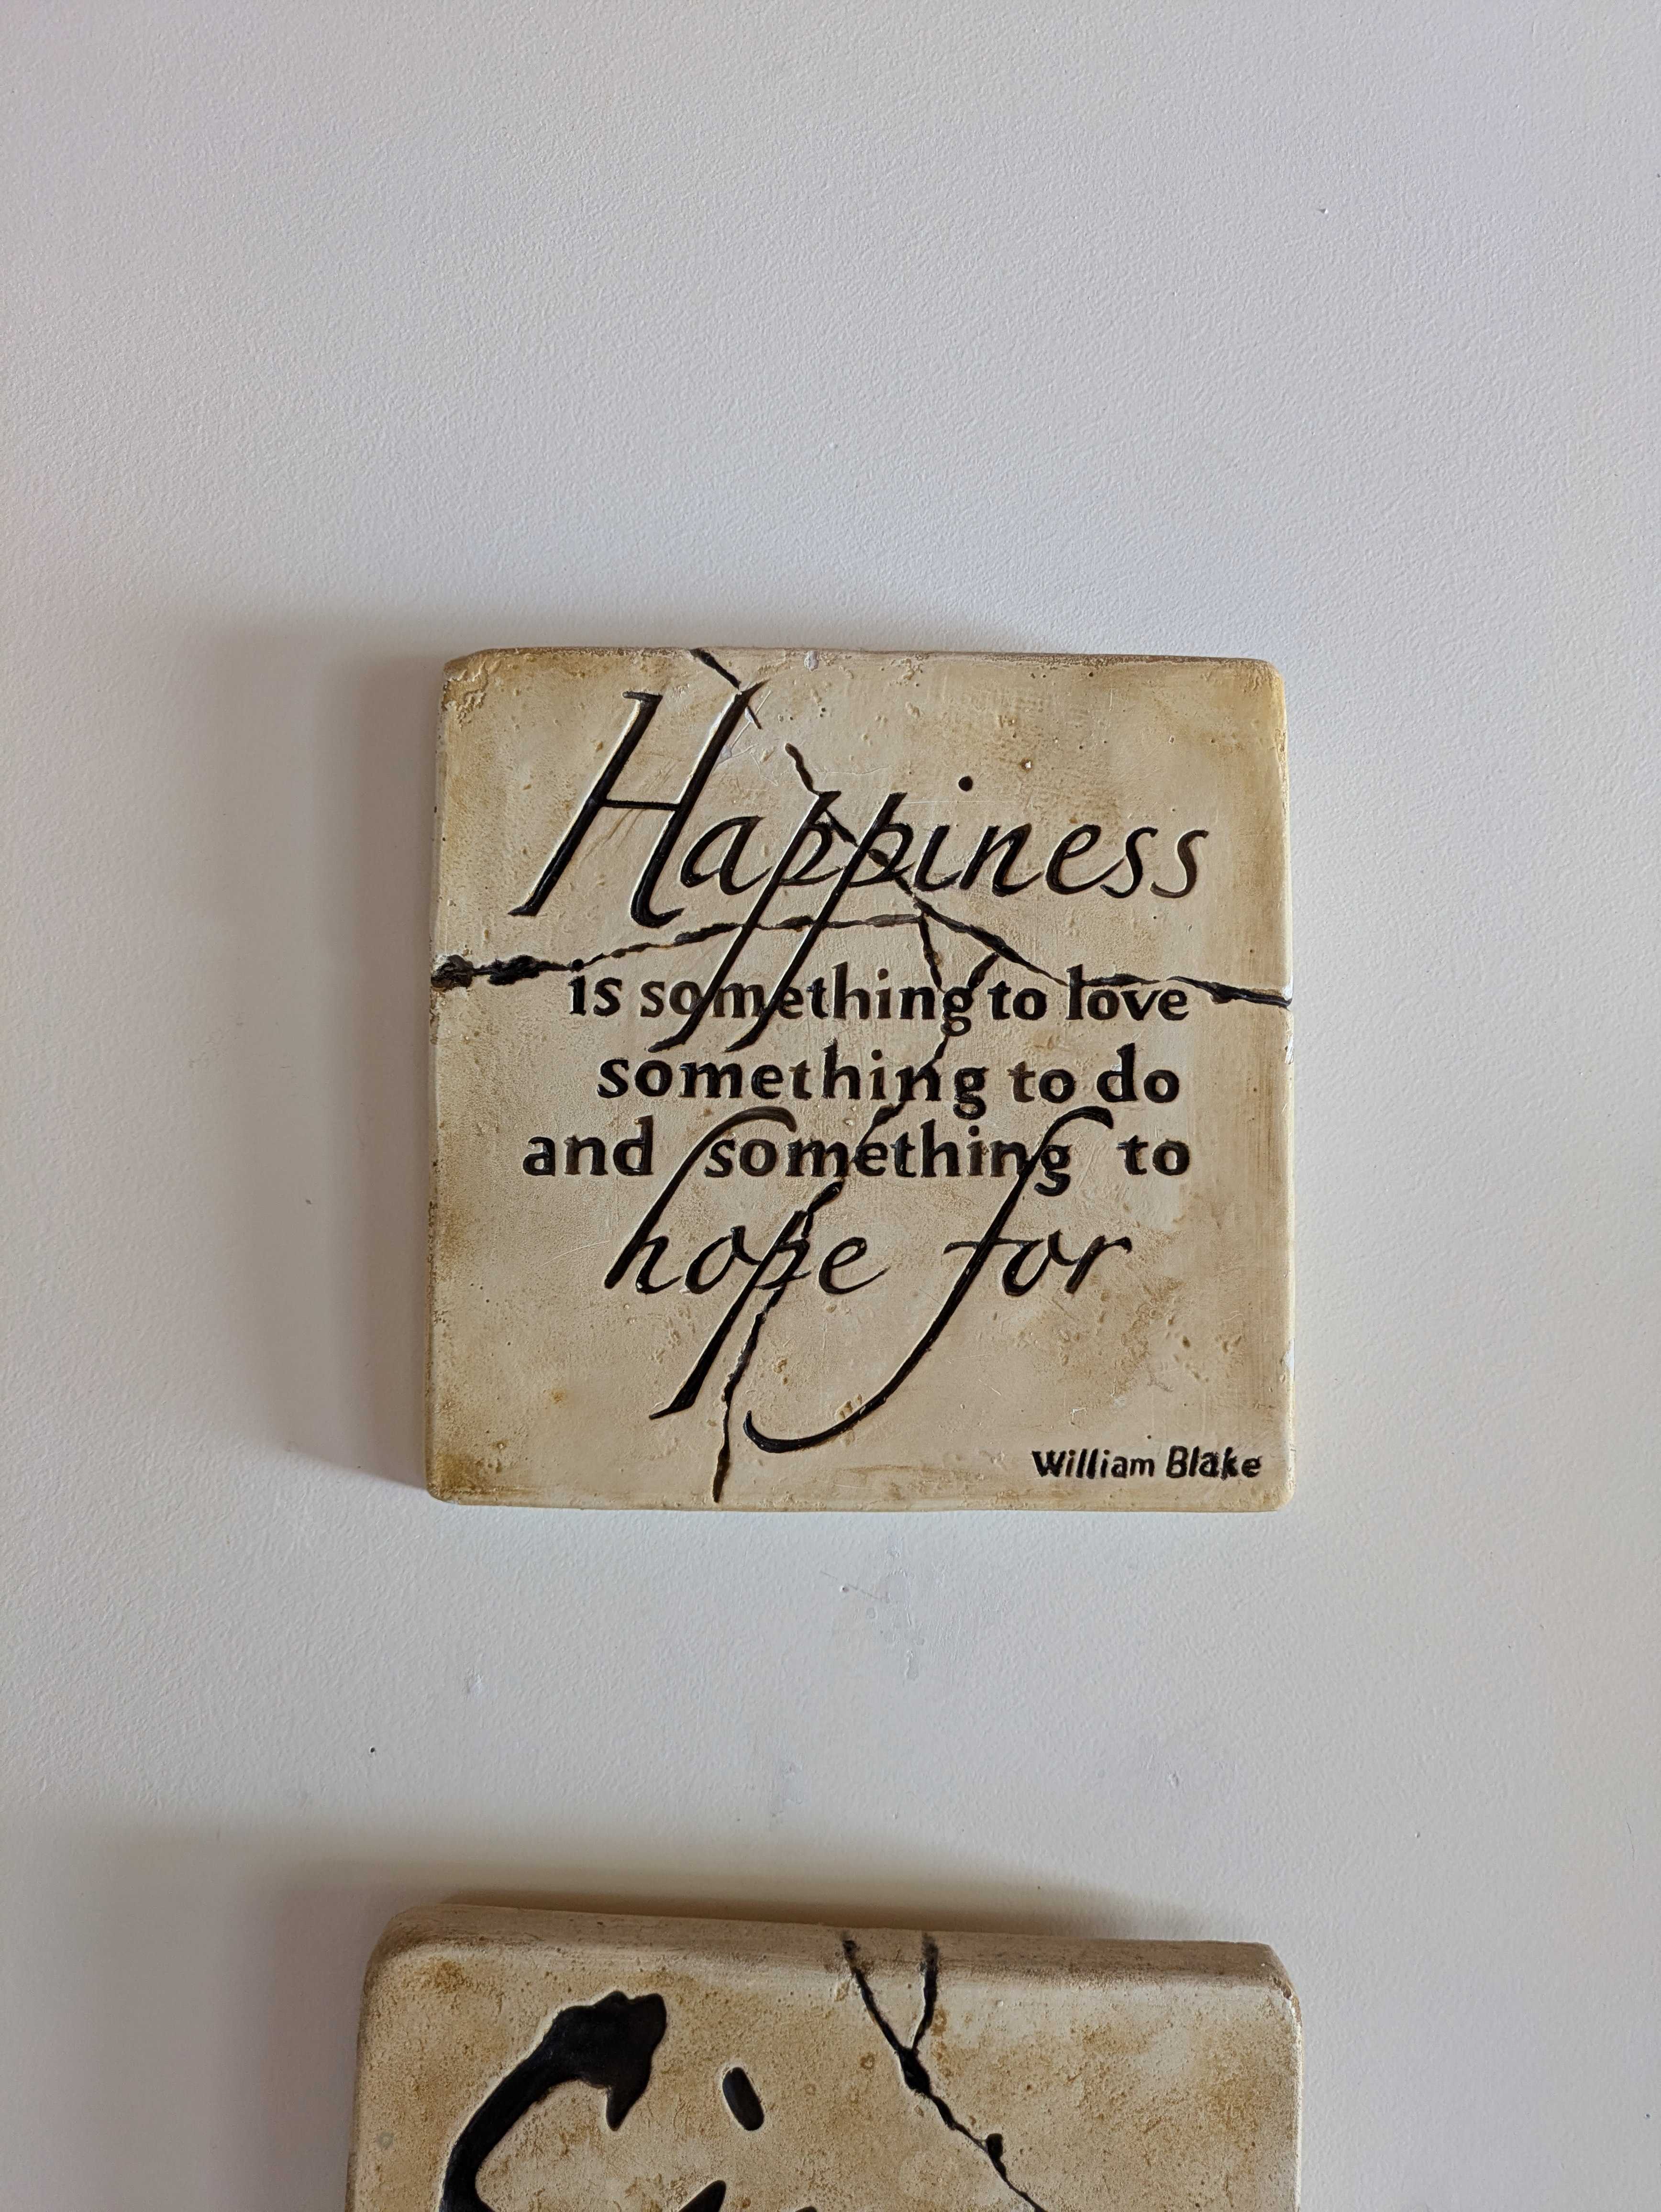 Happiness
is something to love
something to do
and something to
hope for
William Blake